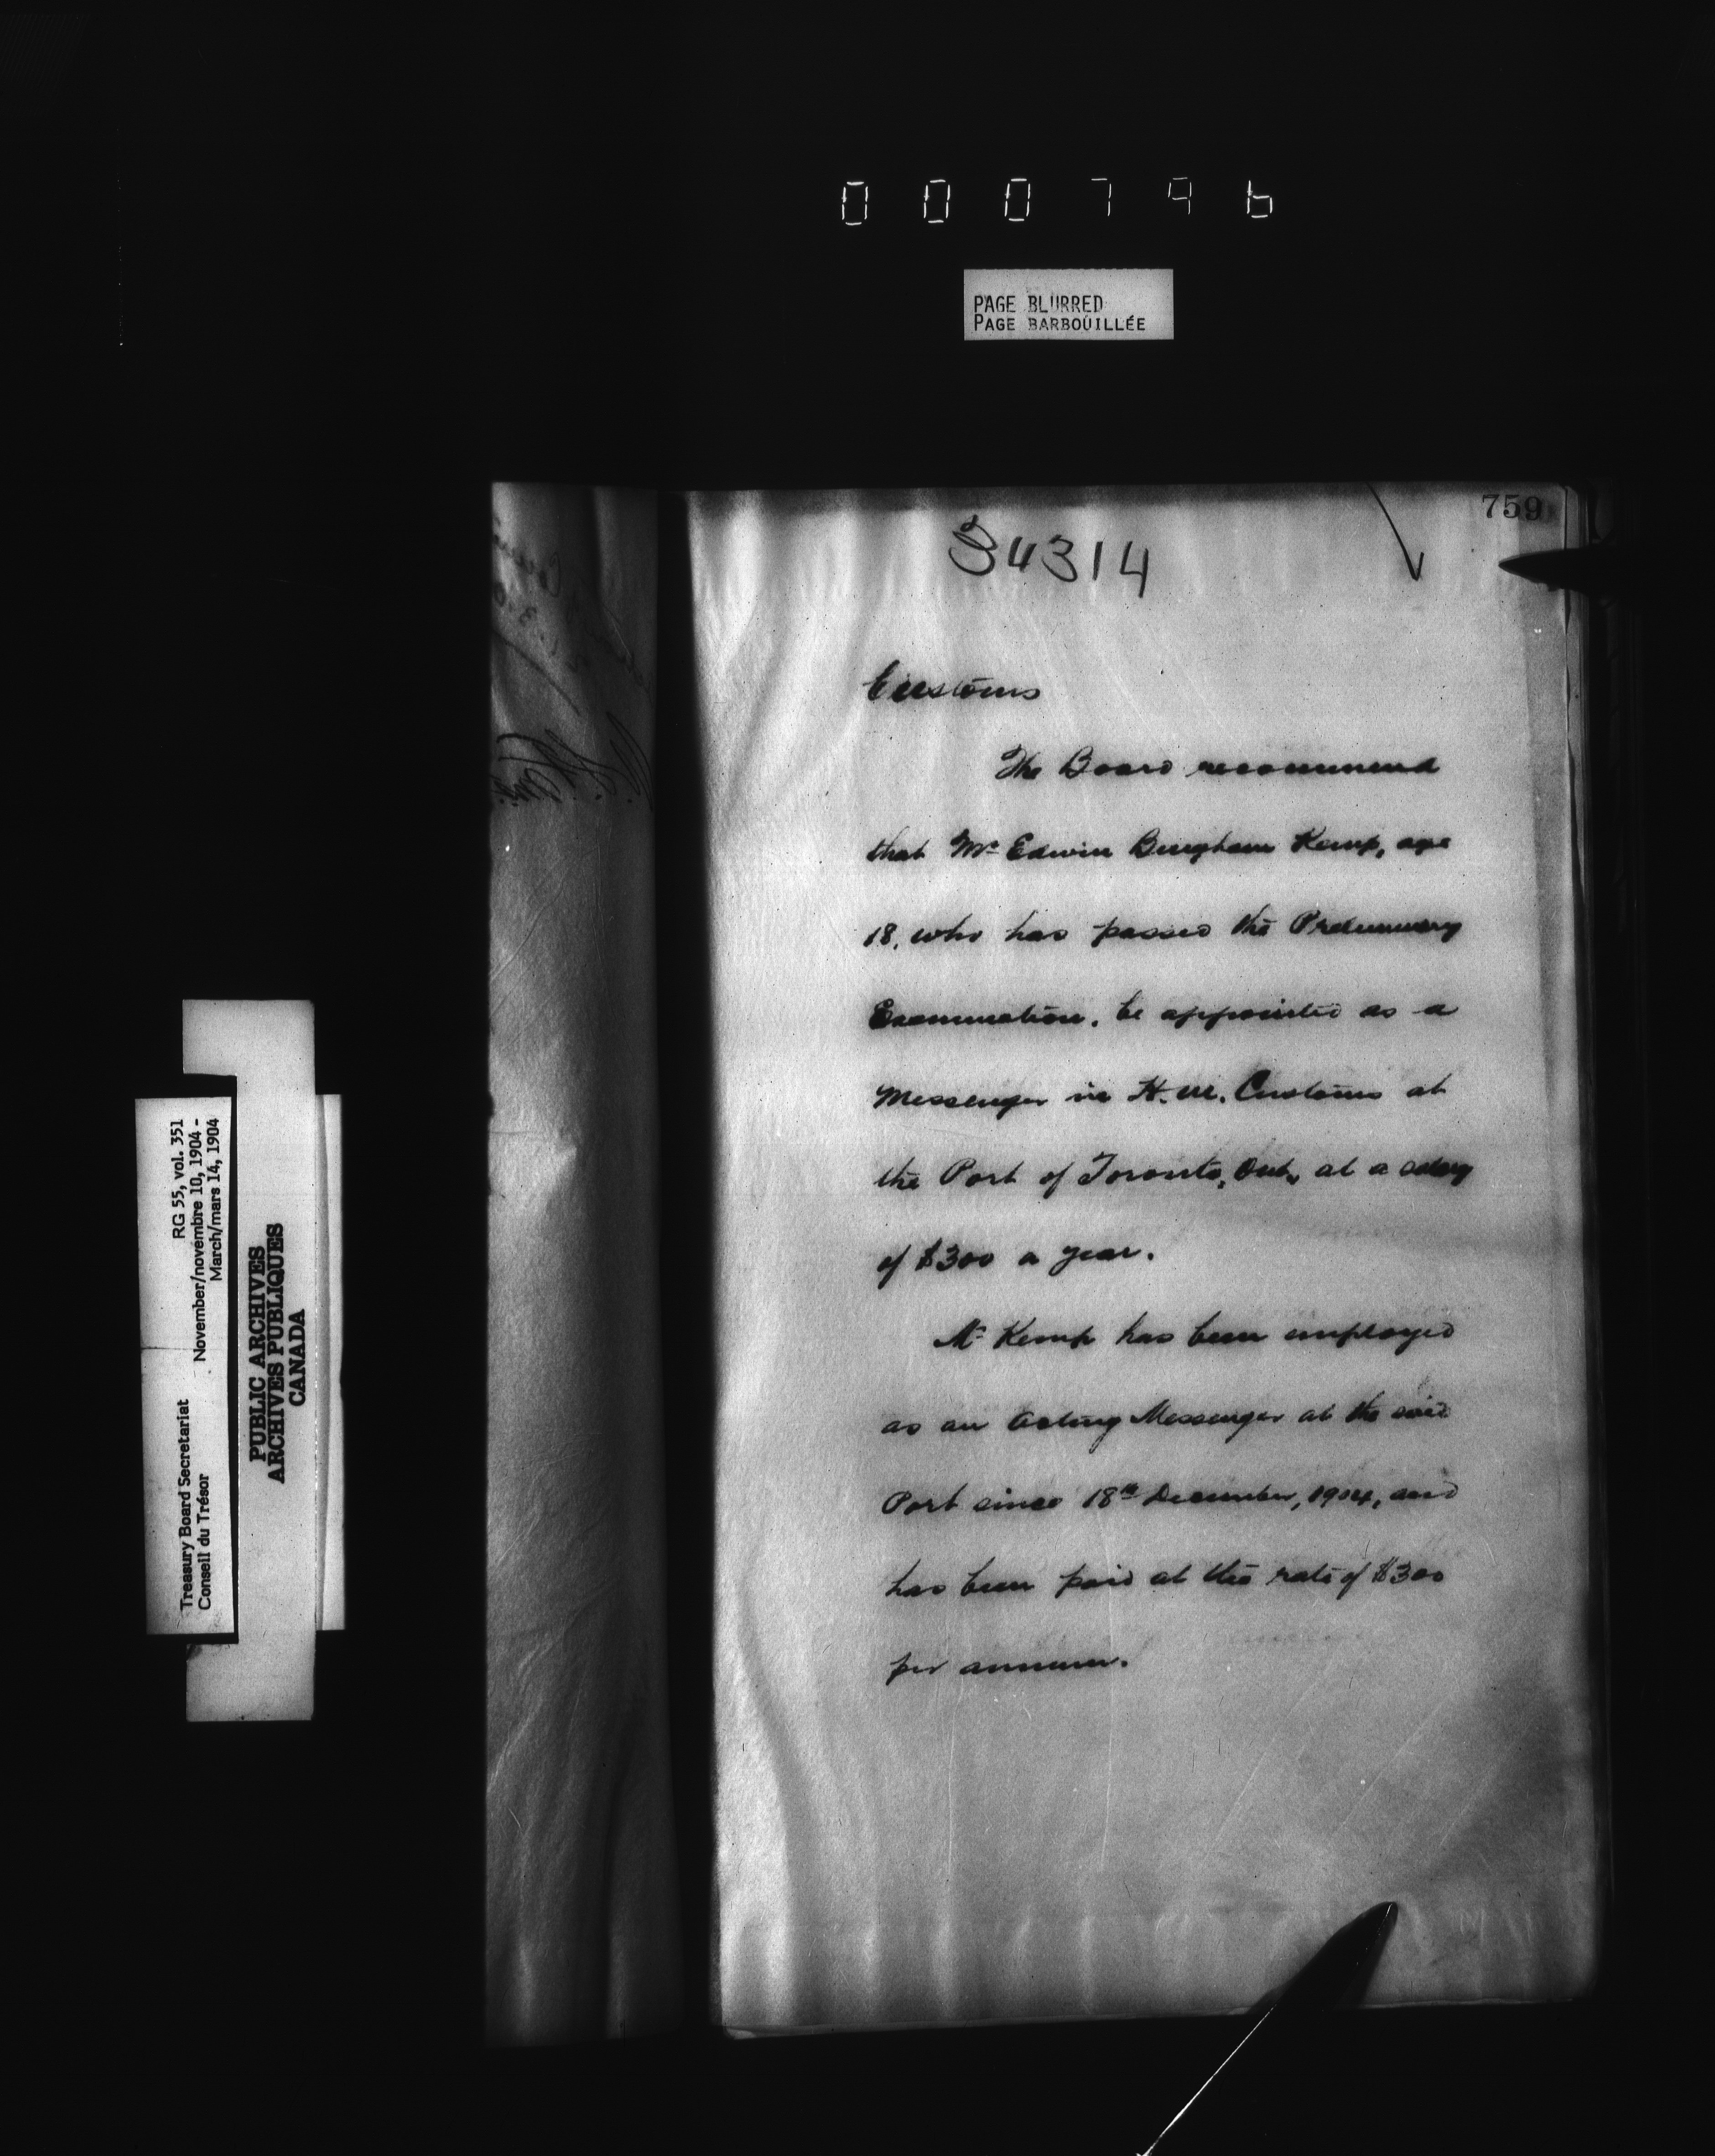 000796
PAGE BLURRED
PAGE BARBOUILLÉE
759
34314
Customs
The Board recommend
that Mr Edwin Bingham Kemp, age
18, who has passed the Preliminary
Examination, be appointed as a
Messenger in H.M. Customs at
the Port of Toronto, Ont., at a salary
of $300 a year.
Mr Kemp has been employed
as an Acting Messenger at the said
Port since 18th December, 1904, and
has been paid at the rate of $300
per annum.
Treasury Board Secretariat RG 55, vol. 351
Conseil du Trésor November/novembre 10, 1904 -
March/mars 14, 1904
PUBLIC ARCHIVES
ARCHIVES PUBLIQUES
CANADA